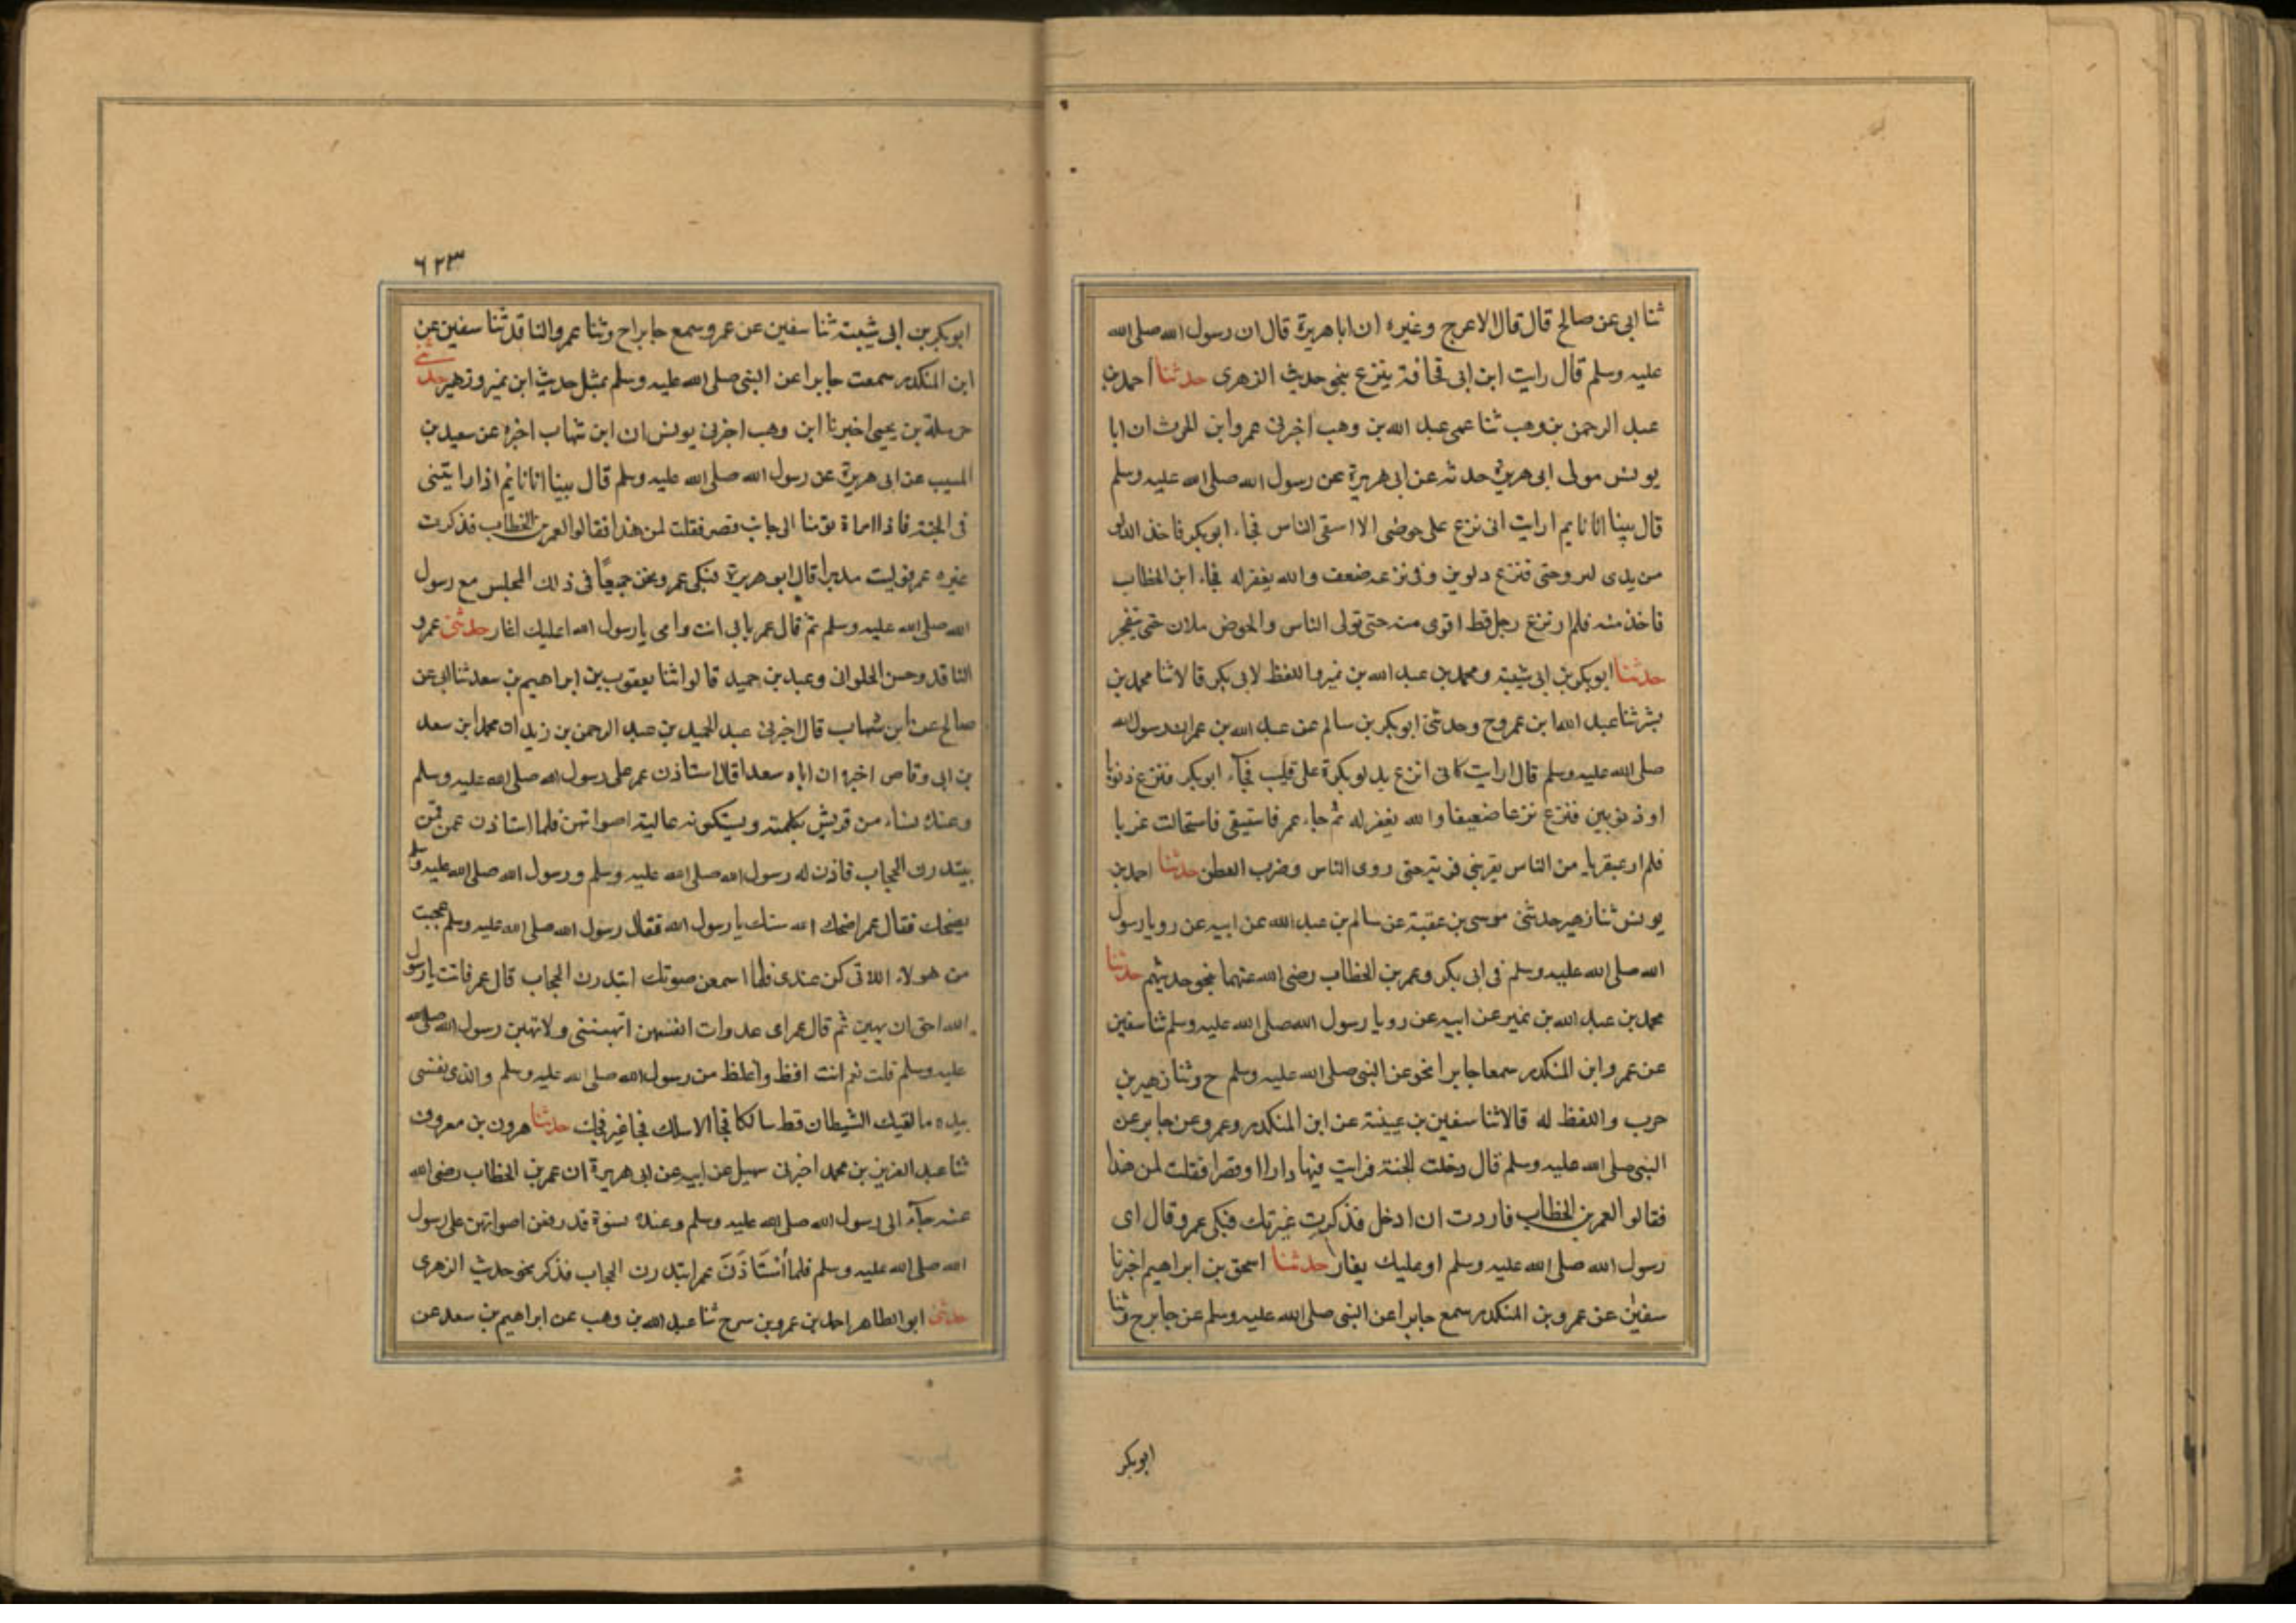 ثنا ابى عن صالح قال قال الاعرج وغيره ان ابا هريرة قال ان رسول الله صلى الله
عليه وسلم قال رايت ابن ابى قحافة ينزع بنحو حديث الزهرى حدثنا احمد بن
عبد الرحمن بن وهب ثنا عمى عبد الله بن وهب اخبرنى عمرو ابن الحرث ان ابا
يونس مولى ابى هريرة حدثه عن ابى هريرة عن رسول الله صلى الله عليه وسلم
قال بينا انا نايم ارايت انى نزع على حوضى الا اسقى الناس فجاء ابوبكر فاخذ الدلو
من يدى لىروحنى فنزع دلوين وفى نزعه ضعف والله يغفر له فجاء ابن الخطاب
فاخذ منه فلم ار نزع رجل قط اقوى منه حتى تولى الناس والحوض ملان حتى يتفجر
حدثنا ابوبكر بن ابى شيبة ومحمد بن عبد الله بن نمير واللفظ لابى بكر قالا ثنا محمد بن
بشر ثنا عبد الله ابن عمر وح وحدثنى ابوبكر بن سالم عن عبد الله بن عمر ان رسول الله
صلى الله عليه وسلم قال ارايت كانى انزع بدلو بكرة على قليب فجآء ابوبكر فنزع ذنوبا
او ذنوبين فنزع نزعا ضعيفا والله يغفر له ثم جاء عمر فاستقى فاستحالت غربا
فلم ار عبقريا من الناس يفرى فريه حتى روى الناس وضرب العطن حدثنا احمد بن
يونس ثنا زهير حدثنى موسى بن عقبة عن سالم بن عبد الله عن ابيه عن رويا رسول
الله صلى الله عليه وسلم فى ابى بكر وعمر بن الخطاب رضى الله عنهما بنحو حديثهم حدثنا
محمد بن عبد الله بن نمير عن ابيه عن رويا رسول الله صلى الله عليه وسلم ثنا سفين
عن عمرو ابن المنكدر سمعا جابرا نحو عن النبى صلى الله عليه وسلم ح وثنا زهير بن
حرب واللفظ له قالا ثنا سفين بن عيينة عن ابن المنكدر وعمرو عن جابر عن
النبى صلى الله عليه وسلم قال دخلت الجنة فرايت فيها دارا اوقصرا فقلت لمن هذا
فقالوا لعمر بن الخطاب فاردت ان ادخل فذكرت غيرتك فبكى عمر وقال اى
رسول الله صلى الله عليه وسلم اوعليك يغار حدثنا اسحق بن ابراهيم اخبرنا
سفين عن عمرو بن المنكدر سمع جابرا عن النبى صلى الله عليه وسلم عن جابر ح وثنا
ابوبكر
٦٢٣
ابوبكر بن ابى شيبة ثنا سفين عن عمرو سمع جابرا ح وثنا عمرو الناقد ثنا سفين عن
ابن المنكدر سمعت جابرا عن النبى صلى الله عليه وسلم بمثل حديث ابن نمير وزهير حدثنى
حرملة بن يحيى اخبرنا ابن وهب اخبرنى يونس ان ابن شهاب اخبره عن سعيد بن
المسيب عن ابى هريرة عن رسول الله صلى الله عليه وسلم قال بينا انا نايم اذ رايتنى
فى الجنة فاذا امراة توضا الى جانب قصر فقلت لمن هذا فقالوا لعمر بن الخطاب فذكرت
غيره عمر فوليت مدبرا قال ابو هريرة فبكى عمر ونحن جميعًا فى ذلك المجلس مع رسول
الله صلى الله عليه وسلم ثم قال عمر بابى انت وامى يا رسول الله اعليك اغار حدثنى عمرو
الناقد وحسن الحلوانى وعبد بن حميد قالوا ثنا يعقوب بن ابراهيم بن سعد ثنا ابى عن
صالح عن ابن شهاب قال اخبرنى عبد الحميد بن عبد الرحمن بن زيد ان محمد ابن سعد
بن ابى وقاص اخبره ان اباه سعدا قال استاذن عمر على رسول الله صلى الله عليه وسلم
وعنده نساء من قريش يكلمنه ويستكونه عالية اصواتهن فلما استاذن عمر قمن
يبتدرن الحجاب فاذن له رسول الله صلى الله عليه وسلم ورسول الله صلى الله عليه وسلم
يضحك فقال عمر اضحك الله سنك يا رسول الله فقال رسول الله صلى الله عليه وسلم عجبت
من هولاء اللاتى كن عندى فلما سمعن صوتك ابتدرن الحجاب قال عمر فانت يا رسول
الله احق ان يهبن ثم قال عمر اى عدوات انفسهن اتهبننى ولا تهبن رسول الله صلى الله
عليه وسلم قلت نعم انت افظ واغلظ من رسول الله صلى الله عليه وسلم والذى نفسى
بيده ما لقيك الشيطان قط سالكا فجا الا سلك فجا غير فجك حدثنا هرون بن معروف
ثنا عبد العزيز بن محمد اخبرنى سهيل عن ابيه عن ابى هريرة ان عمر بن الخطاب رضى الله
عنه جآء الى رسول الله صلى الله عليه وسلم وعنده نسوة قد رفعن اصواتهن على رسول
الله صلى الله عليه وسلم فلما أسْتَاذَنَ عمر ابتدرن الحجاب فذكر نحو حديث الزهرى
حدثنى ابو الطاهر احمد بن عمرو بن سرح ثنا عبد الله بن وهب عن ابراهيم بن سعد عن